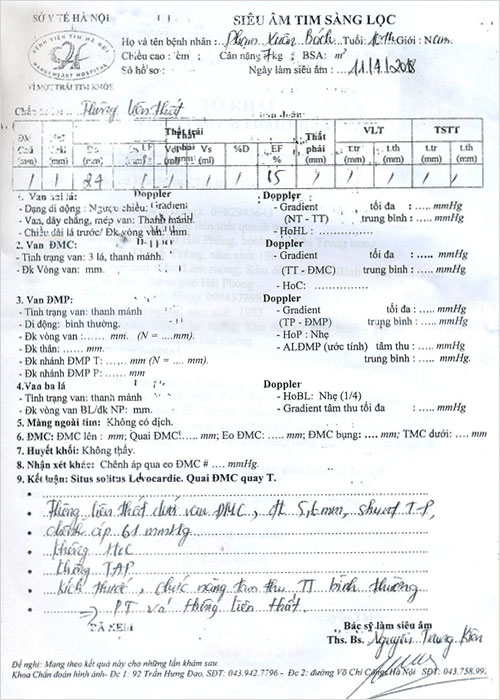 SỞ Y TẾ HÀ NỘI
SIÊU ÂM TIM SÀNG LỌC
BỆNH VIỆN TIM HÀ NỘI
HANOI HEART HOSPITAL
VÌ MỘT TRÁI TIM KHỎE
Họ và tên bệnh nhân : Phạm Xuân Bách Tuổi: 10th Giới : Nam
Chiều cao : cm ; Cân nặng 7 kg ; BSA: m²
Số hồ sơ: Ngày làm siêu âm : 11/4/2018
Thông liên thất
Thất trái Thất phải VLT TSTT
(mm) (mm) (mm) (mm) (ml) Vs (ml) %D EF % (mm) t.tr (mm) t.th (mm) t.tr (mm) t.th (mm)
/ / 24 / / / / 65 / / / / /
1. Van hai lá: Doppler Doppler
- Dạng di động : Ngược chiều: Gradient - Gradient tối đa : ..... mmHg
- Van, dây chằng, mép van: Thanh mảnh. (NT - TT) trung bình : ..... mmHg
- Chiều dài lá trước/ Đk vòng van: mm. - HoHL : ...............
2. Van ĐMC: Doppler
- Tình trạng van: 3 lá, thanh mảnh. - Gradient tối đa : ..... mmHg
- Đk Vòng van: mm. (TT - ĐMC) trung bình : ..... mmHg
- HoC: ...............
3. Van ĐMP: Doppler
- Tình trạng van: thanh mảnh - Gradient tối đa : ..... mmHg
- Di động: bình thường. (TP - ĐMP) trung bình : ..... mmHg
- Đk vòng van :...... mm. (N = ....mm). - HoP : Nhẹ
- Đk thân: ...... mm. - ALĐMP (ước tính) tâm thu : ..... mmHg
- Đk nhánh ĐMP T: ..... mm (N = .... mm). trung bình : ..... mmHg.
- Đk nhánh ĐMP P: ...... mm
4.Van ba lá Doppler
- Tình trạng van: thanh mảnh - HoBL: Nhẹ (1/4)
- Đk vòng van BL/đk NP: mm. - Gradient tâm thu tối đa : ..... mmHg
5. Màng ngoài tim: Không có dịch.
6. ĐMC: ĐMC lên : mm; Quai ĐMC!..... mm; Eo ĐMC: .... mm; ĐMC bụng: .... mm; TMC dưới: .... mm
7. Huyết khối: Không thấy.
8. Nhận xét khác: Chênh áp qua eo ĐMC # .... mmHg.
9. Kết luận: Situs solitus Levocardie. Quai ĐMC quay T.
Thông liên thất dưới van ĐMC, đk 5,6 mm, shunt T-P,
chênh áp 61 mmHg
Không HoC
Không TAP
Kích thước, chức năng tâm thu TT bình thường
→ PT vá thông liên thất.
ĐÃ XEM
Bác sỹ làm siêu âm
Ths. Bs. Nguyễn Trung Kiên
Đề nghị: Mang theo kết quả này cho những lần khám sau.
Khoa Chẩn đoán hình ảnh- Đc 1: 92 Trần Hưng Đạo, SĐT: 043.942.7796 - Đc 2: đường Võ Chí Công Hà Nội SĐT: 043.758.99